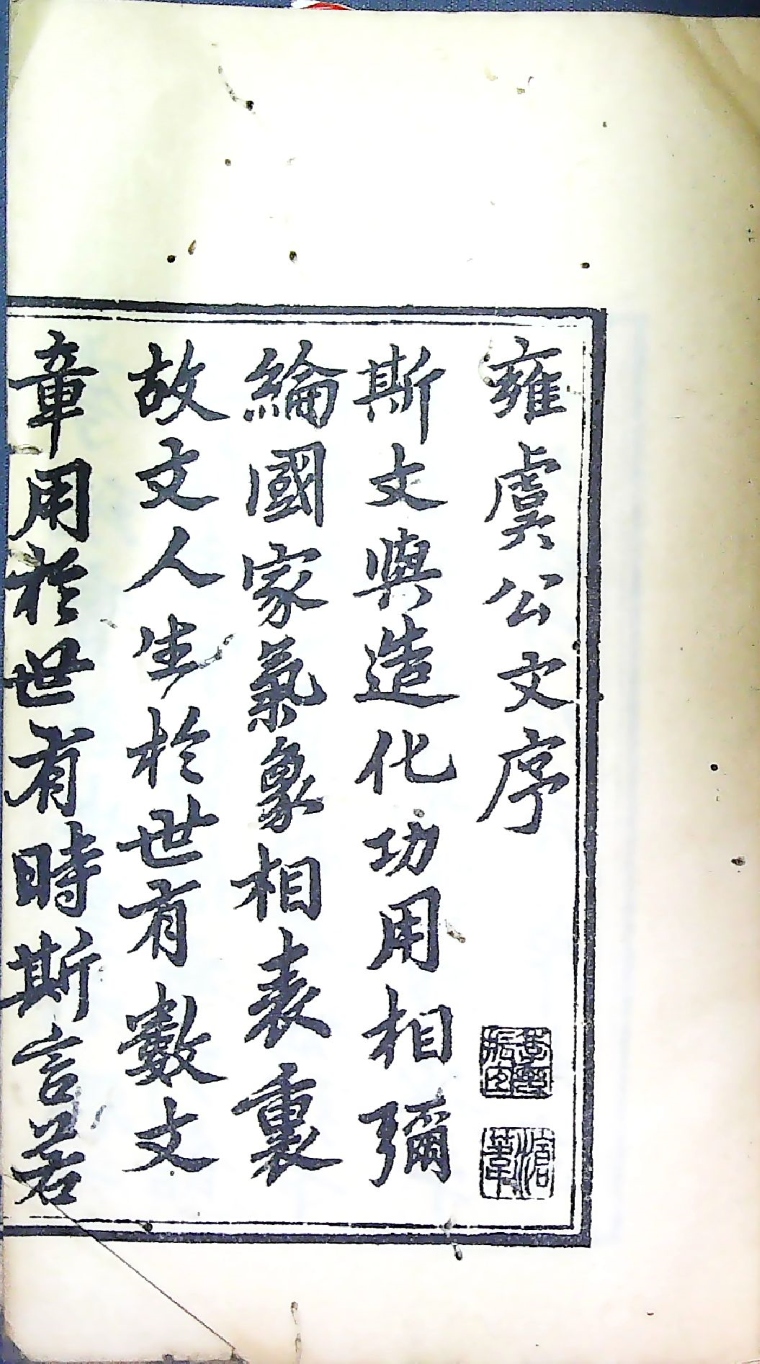 雍虞公文序
斯文與造化功用相彌
綸國家氣象相表裏
故文人生於世有數文
章用於世有時斯言若
滄葦